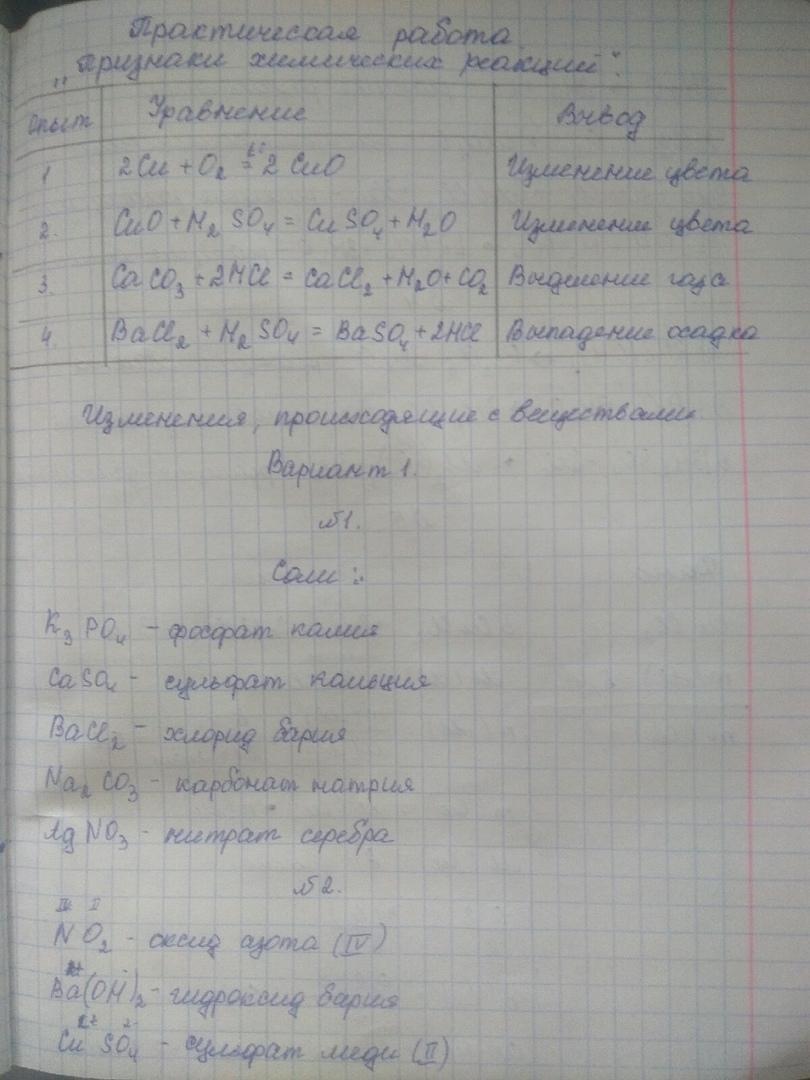 Практическая работа
„Признаки химических реакций".
Опыт Уравнение Вывод
1 2Cu + O₂ t°= 2 CuO Изменение цвета
2. CuO + H₂SO₄ = CuSO₄ + H₂O Изменение цвета
3. CaCO₃ + 2HCl = CaCl₂ + H₂O + CO₂ Выделение газа
4. BaCl₂ + H₂SO₄ = BaSO₄ + 2HCl Выпадение осадка
Изменения, происходящие с веществами
Вариант 1.
№1.
Соли:
K₃PO₄ - фосфат калия
CaSO₄ - сульфат кальция
BaCl₂ - хлорид бария
Na₂CO₃ - карбонат натрия
AgNO₃ - нитрат серебра
№2.
IV II
NO₂ - оксид азота (IV)
Ba(OH)₂ - гидроксид бария
2+ 2-
CuSO₄ - сульфат меди (II)